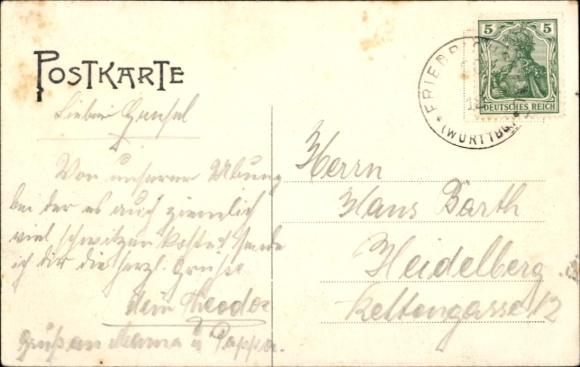 POSTKARTE
5 5
DEUTSCHES REICH
FRIEDRICHS
* (WÜRTTBG.) *
Lieber Hansel
Von unserer Übung
bei der es auch ziemlich
viel schwitzen kostet sende
ich dir die herzl. Grüsse
dein Theodor
Gruß an Mama u Pappa.
Herrn
Hans Barth
Heidelberg.
Kettengasse 12